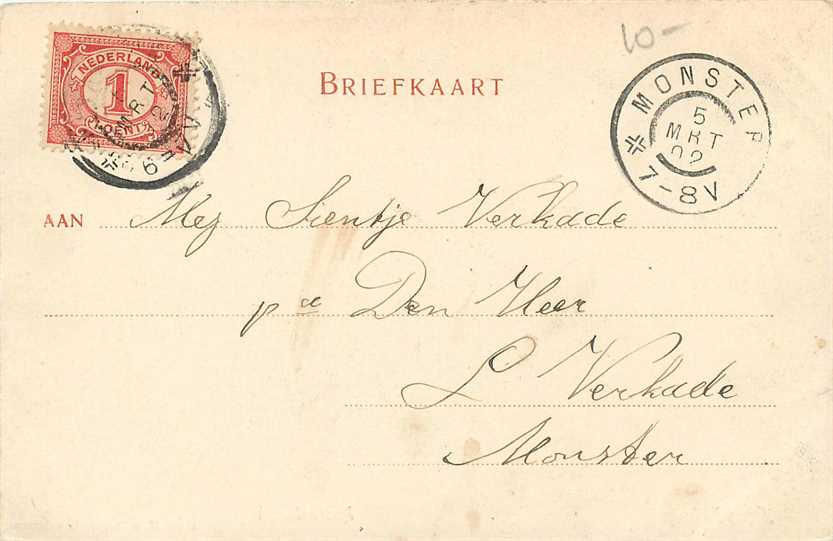 10-
NEDERLAND
1
CENT
MRT
BRIEFKAART
MONSTER
5
MRT
02
7-8V
AAN Mej Sientje Verkade
p a Den Heer
L Verkade
Monster